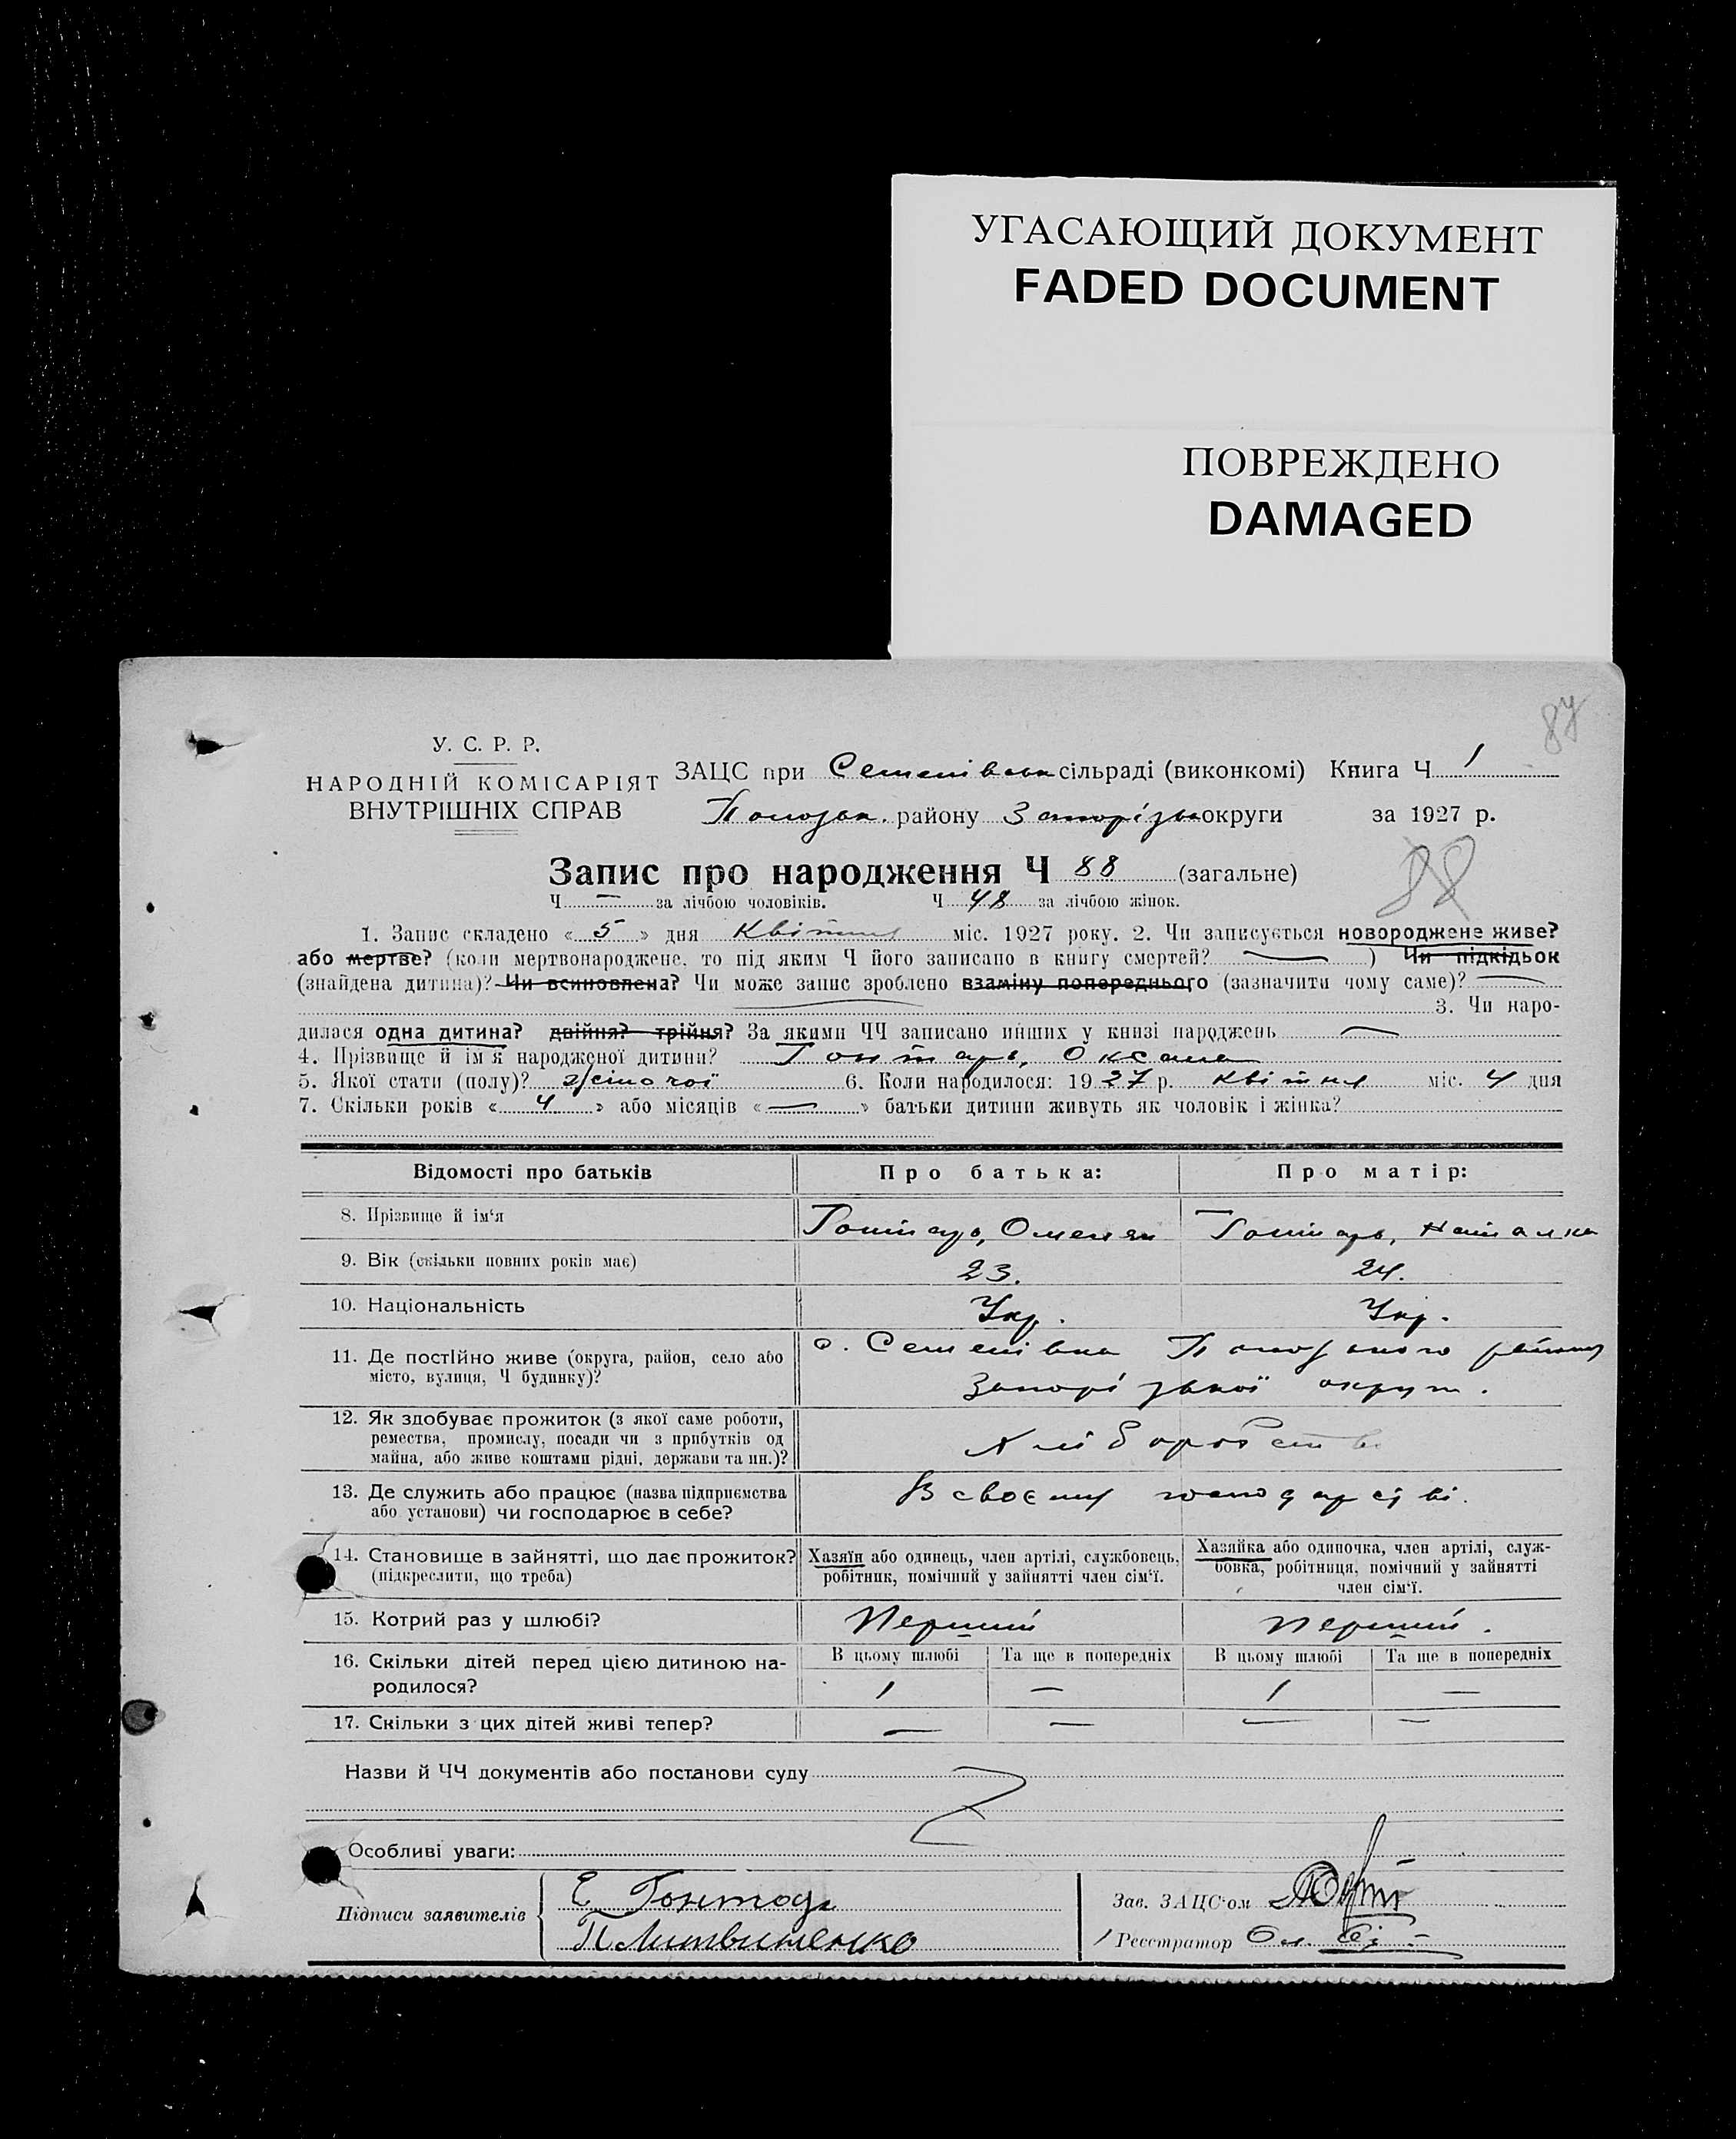 УГАСАЮЩИЙ ДОКУМЕНТ
FADED DOCUMENT
ПОВРЕЖДЕНО
DAMAGED
87
У. С. Р. Р.
НАРОДНІЙ КОМІСАРІЯТ
ВНУТРІШНІХ СПРАВ
ЗАЦС при Семенівськ сільраді (виконкомі) Книга Ч 1
району Запорізьк округи за 1927 р.
88
Запис про народження Ч 88 (загальне)
Ч — за лічбою чоловіків. Ч 48 за лічбою жінок.
1. Запис складено « 5 » дня Квітня міс. 1927 року. 2. Чи записується новороджене живе?
або мертве? (коли мертвонароджене, то під яким Ч його записано в книгу смертей? — ) Чи підкідьок
(знайдена дитина)? Чи всиновлена? Чи може запис зроблено взаміну попереднього (зазначити чому саме)? —
3. Чи наро-
дилася одна дитина? двійня? трійня? За якими ЧЧ записано инших у книзі народжень —
4. Прізвище й ім'я народженої дитини? Гонтарь, Оксана
5. Якої стати (полу)? жіночої 6. Коли народилося: 1927 р. квітня міс. 4 дня
7. Скільки років « 4 » або місяців « — » батьки дитини живуть як чоловік і жінка?
Відомості про батьків Про батька: Про матір:
8. Прізвище й ім'я Гонтарь, Омелян Гонтарь, Наталка
9. Вік (скільки повних років має) 23. 24.
10. Національність Укр. Укр.
11. Де постійно живе (округа, район, село або
місто, вулиця, Ч будинку)?
с. Семенівка району
Запорізької округи.
12. Як здобуває прожиток (з якої саме роботи,
ремества, промислу, посади чи з прибутків од
майна, або живе коштами рідні, держави та ин.)?
Хліборобств
13. Де служить або працює (назва підприємства
або установи) чи господарює в себе?
В своєму господарстві.
14. Становище в зайнятті, що дає прожиток?
(підкреслити, що треба)
Хазяїн або одинець, член артілі, службовець,
робітник, помічний у зайнятті член сім'ї.
Хазяйка або одиночка, член артілі, служ-
бовка, робітниця, помічний у зайнятті
член сім'ї.
15. Котрий раз у шлюбі? Перший перший.
16. Скільки дітей перед цією дитиною на-
родилося?
В цьому шлюбі Та ще в попередніх В цьому шлюбі Та ще в попередніх
1 — 1 —
17. Скільки з цих дітей живі тепер? — — — —
Назви й ЧЧ документів або постанови суду
Особливі уваги:
Підписи заявителів
Е Гонтарь
П Литвиненко
Зав. ЗАЦС'ом
Реєстратор